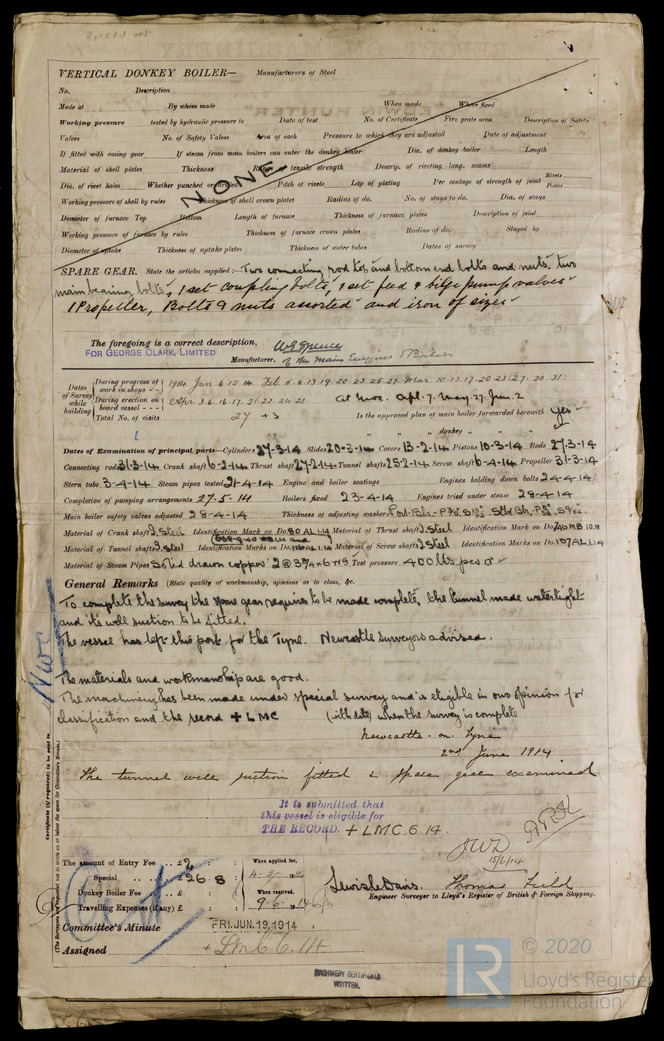 VERTICAL DONKEY BOILER— Manufacturers of Steel
No. Description
Made at By whom made When made Where fixed
Working pressure tested by hydraulic pressure to Date of test No. of Certificate Fire grate area Description of Safety
Valves No. of Safety Valves Area of each Pressure to which they are adjusted Date of adjustment
If fitted with easing gear If steam from main boilers can enter the donkey boiler Dia. of donkey boiler Length
Material of shell plates Thickness Range of tensile strength Descrip. of riveting long. seams
Dia. of rivet holes Whether punched or drilled Pitch of rivets Lap of plating Per centage of strength of joint Rivets Plates
Working pressure of shell by rules Thickness of shell crown plates Radius of do. No. of stays to do. Dia. of stays
Diameter of furnace Top Bottom Length of furnace Thickness of furnace plates Description of joint
Working pressure of furnace by rules Thickness of furnace crown plates Radius of do. Stayed by
Diameter of uptake Thickness of uptake plates Thickness of water tubes Dates of survey
NONE
SPARE GEAR. State the articles supplied:— Two connecting rod top and bottom end bolts and nuts, two
main bearing bolts, 1 set coupling bolts, 1 set feed & bilge pump valves
1 Propeller, Bolts & nuts assorted and iron of sizes
The foregoing is a correct description,
FOR GEORGE CLARK, LIMITED W G Spence
Manufacturer. of the Main Engines & Boilers
Dates of Survey while building
During progress of work in shops 1914 Jan. 6. 12. 14. Feb. 5. 6. 13. 19. 20. 23. 25. 27. Mar. 10. 13. 17. 20. 23. 27. 30. 31.
During erection on board vessel Apr. 3. 6. 16. 17. 21. 23. 24. 25. At Nwc. Apl. 7. May. 27. Jun. 2
Total No. of visits 27 + 3 Is the approved plan of main boiler forwarded herewith Yes
" " " donkey " "
Dates of Examination of principal parts—Cylinders 27-3-14 Slides 20-3-14 Covers 13-2-14 Pistons 10-3-14 Rods 27-3-14
Connecting rods 31-3-14 Crank shaft 6-2-14 Thrust shaft 27-2-14 Tunnel shafts 25-2-14 Screw shaft 6-4-14 Propeller 31-3-14
Stern tube 3-4-14 Steam pipes tested 21-4-14 Engine and boiler seatings Engines holding down bolts 24-4-14
Completion of pumping arrangements 27.5.14 Boilers fixed 23-4-14 Engines tried under steam 28-4-14
Main boiler safety valves adjusted 28-4-14 Thickness of adjusting washers
Material of Crank shaft I. Steel Identification Mark on Do. 80 AL 1.14 Material of Thrust shaft I. Steel Identification Mark on Do.
Material of Tunnel shafts I. Steel Identification Marks on Do. Material of Screw shafts I Steel Identification Marks on Do. 107 AL 1.14
Material of Steam Pipes Solid drawn copper Test pressure 400 lbs per □"
General Remarks (State quality of workmanship, opinions as to class, &c.
To complete the survey the spare gear requires to be made complete, the tunnel made watertight
and its well suction to be fitted.
The vessel has left this port for the Tyne. Newcastle surveyors advised.
Nwc
The materials and workmanship are good.
The machinery has been made under special survey and is eligible in our opinion for
classification and the record + LMC (with date) when the survey is complete
Newcastle-on-Tyne
2nd June 1914
The tunnel well suction fitted & spare gear examined
It is submitted that
this vessel is eligible for
THE RECORD. + LMC. 6.14.
JWD
15/6/14
Certificate (if required) to be sent to
(The Surveyors are requested not to write on or below the space for Committee's Minute.)
The amount of Entry Fee .. £ 2 : : When applied for,
Special .. .. £ 26 : 8 :
Donkey Boiler Fee .. £ : : When received,
Travelling Expenses (if any) £ : :
Lewis Davis. Thomas Field
Engineer Surveyor to Lloyd's Register of British & Foreign Shipping.
Committee's Minute FRI. JUN. 19. 1914
Assigned + LMC 6.14
MACHINERY CERTIFICATE
WRITTEN.
LR © 2020
Lloyd's Register
Foundation